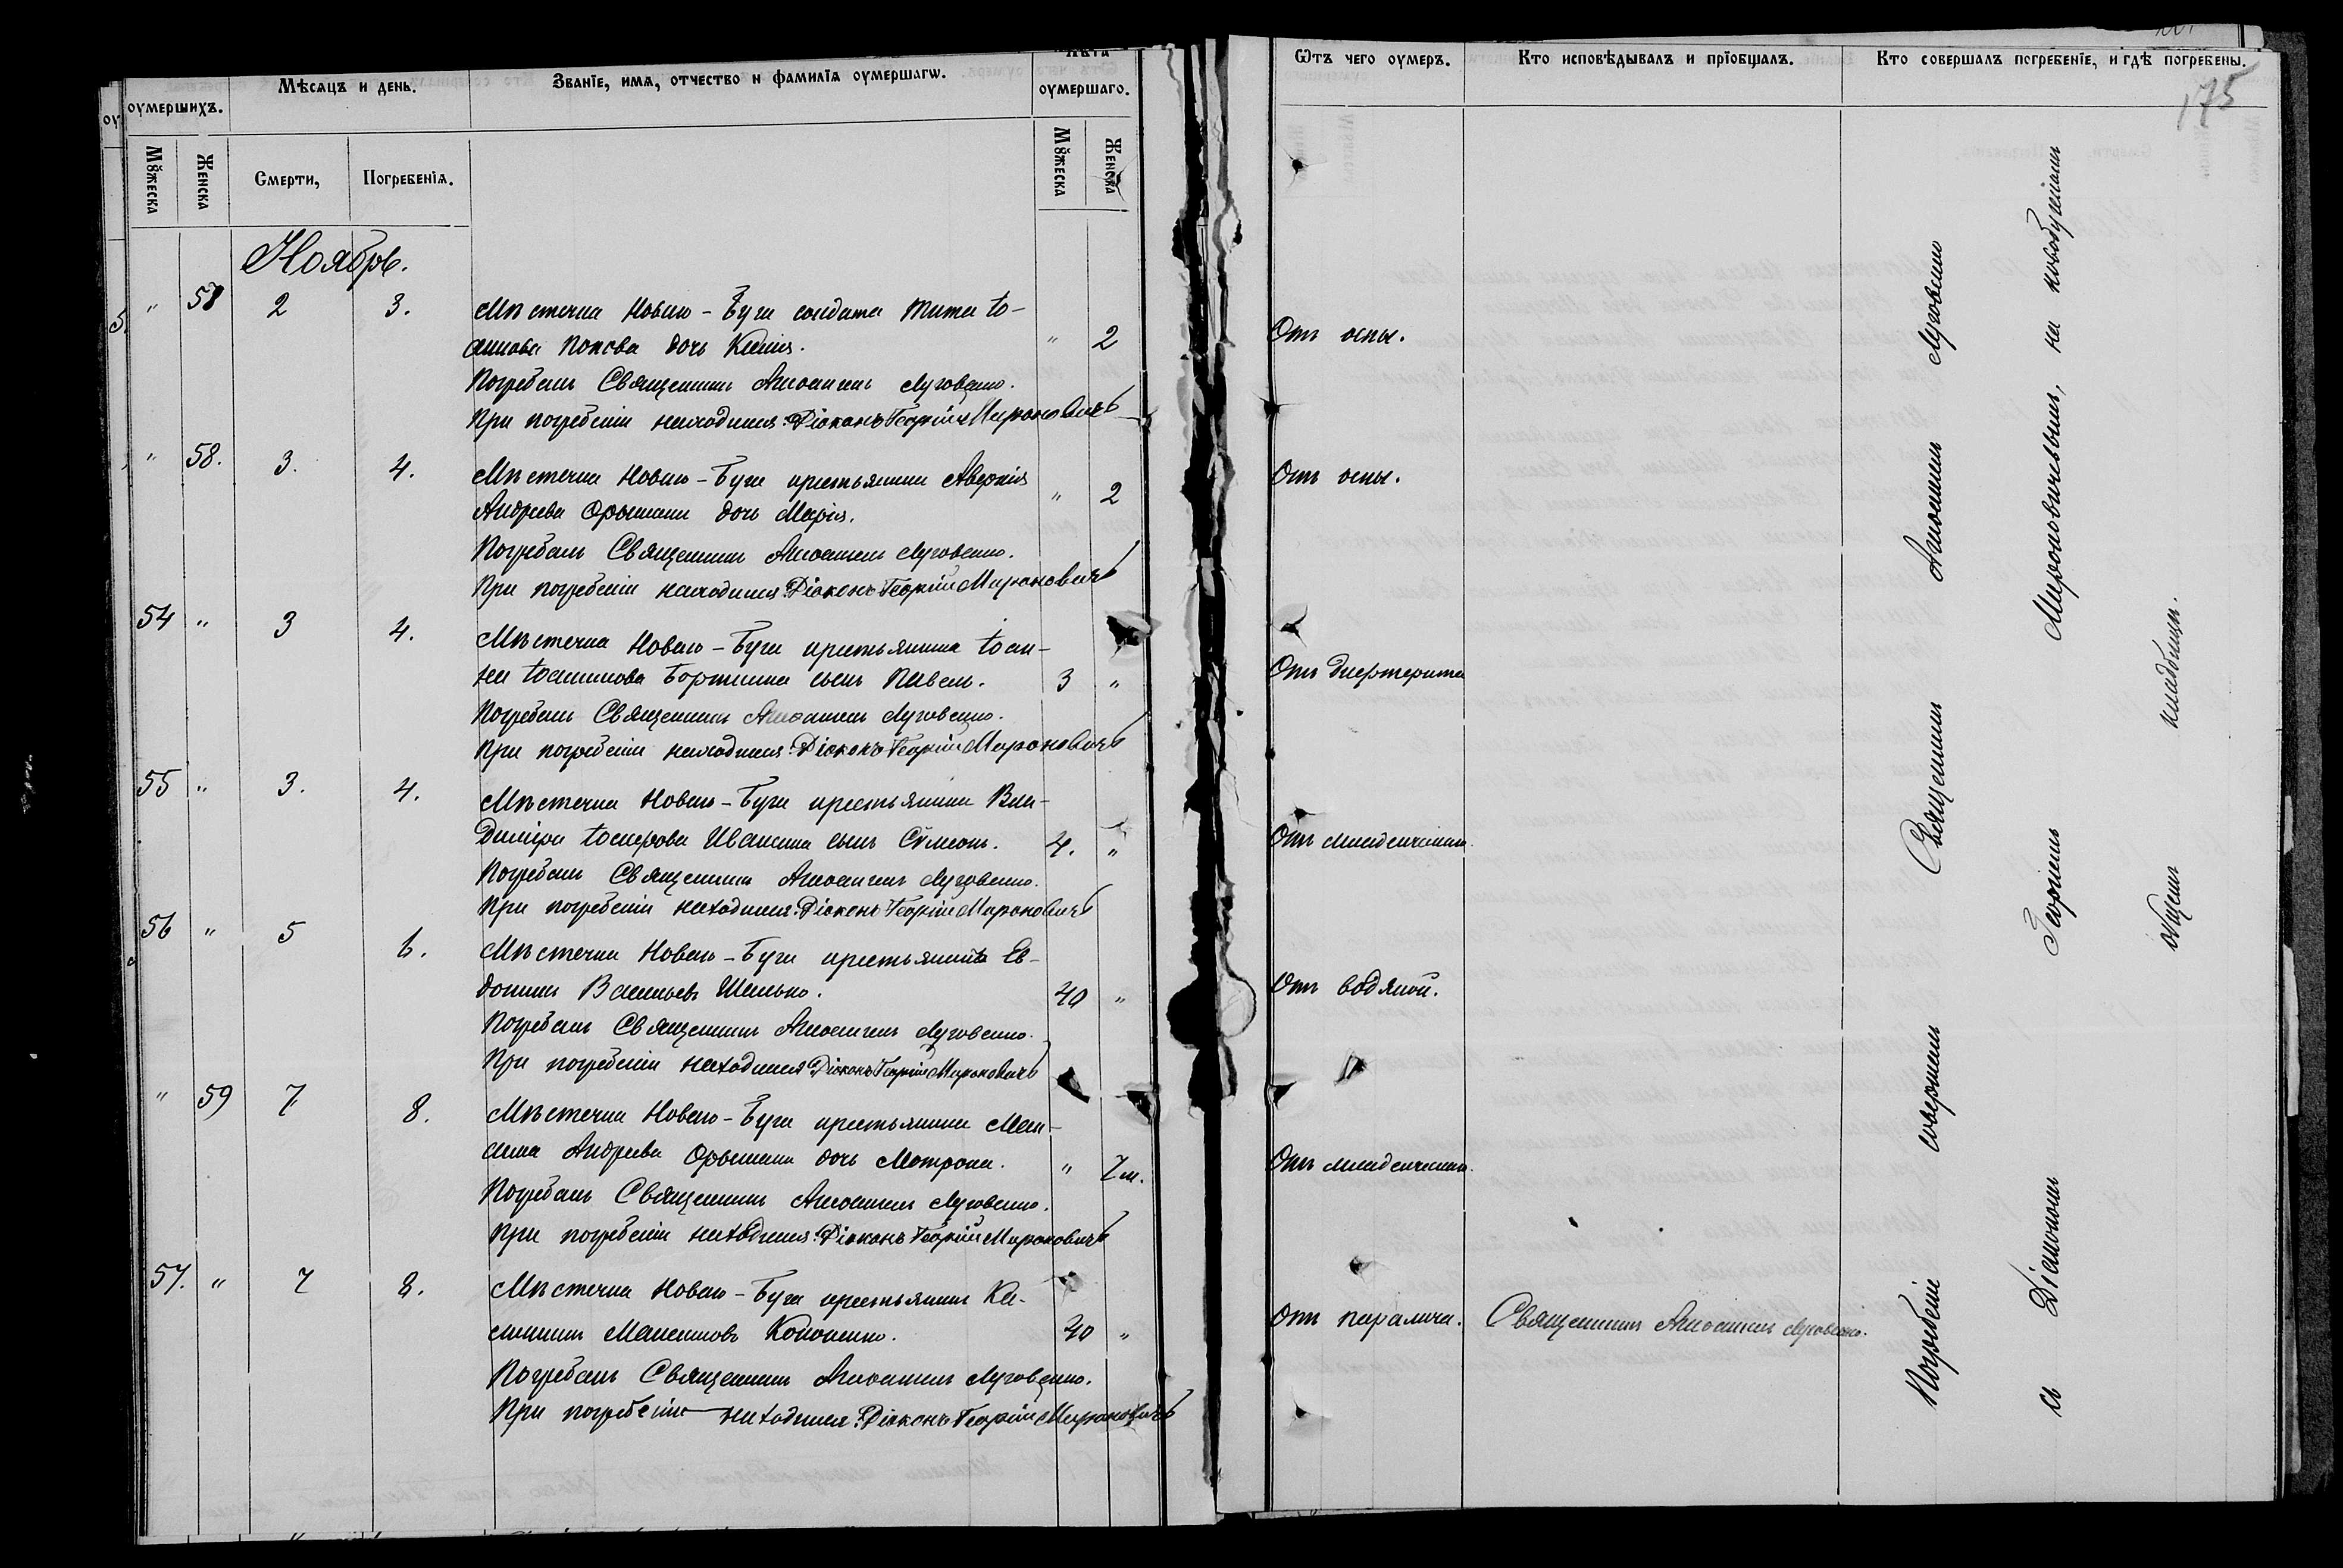 оумершихъ.
Мѣсяцъ и день.
Званїе, имѧ, отчество и фамилїѧ оумершагѡ.
Лѣта
оумершаго.
Мꙋжеска
Женска
Смерти,
Погребенїѧ.
Мꙋжеска
Женска
Ѿтъ чего оумеръ.
Кто исповѣдывалъ и прїобщалъ.
Кто совершалъ погребенїе, и гдѣ погребены.
175
Ноябрь.
" 57 2 3.
Мѣстечка Новаго-Буга солдата Тита Іо-
аннова Попова дочь Ксенія. " 2
Отъ оспы.
Погребалъ Священникъ Аѳанасій Луговенко.
При погребеніи находился: Діаконъ Георгій Мироновичъ
" 58. 3. 4.
Мѣстечка Новаго-Буга крестьянина Аверкія
Андреева дочь Марія. " 2
Отъ оспы.
Погребалъ Священникъ Луговенко.
При погребеніи находился: Діаконъ Георгій Мироновичъ
54 " 3 4.
Мѣстечка Новаго-Буга крестьянина Іоан-
на Іоаннова сынъ Павелъ. 3 "
Отъ дифтерита
Погребалъ Священникъ Луговенко.
При погребеніи находился: Діаконъ Георгій Мироновичъ
55 " 3. 4.
Мѣстечка Новаго-Буга крестьянина Вла-
диміра Іосифова сынъ Сѵмеонъ. 4. "
Отъ младенческой.
Погребалъ Священникъ Луговенко.
При погребеніи находился: Діаконъ Георгій Мироновичъ
56 " 5 6.
Мѣстечка Новаго-Буга крестьянинъ Ев-
докимъ Васильевъ 40 "
Отъ водяной.
Погребалъ Священникъ Луговенко.
При погребеніи находился: Діаконъ Георгій Мироновичъ
" 59 7 8.
Мѣстечка Новаго-Буга крестьянина Мак-
сима Андреева дочь Матрона. " 7 м.
Отъ младенческой.
Погребалъ Священникъ Луговенко.
При погребеніи находился: Діаконъ Георгій Мироновичъ
57. " 7 8.
Мѣстечка Новаго-Буга крестьянинъ Ка-
Максимовъ Кононенко. 40 "
Отъ паралича.
Священникъ Луговенко.
Погребалъ Священникъ Луговенко.
При погребеніи находился: Діаконъ Георгій Мироновичъ
Погребеніе совершалъ Священникъ Луговенко
съ Діакономъ Георгіемъ Мироновичевымъ, на новобугскомъ
общемъ кладбищѣ.